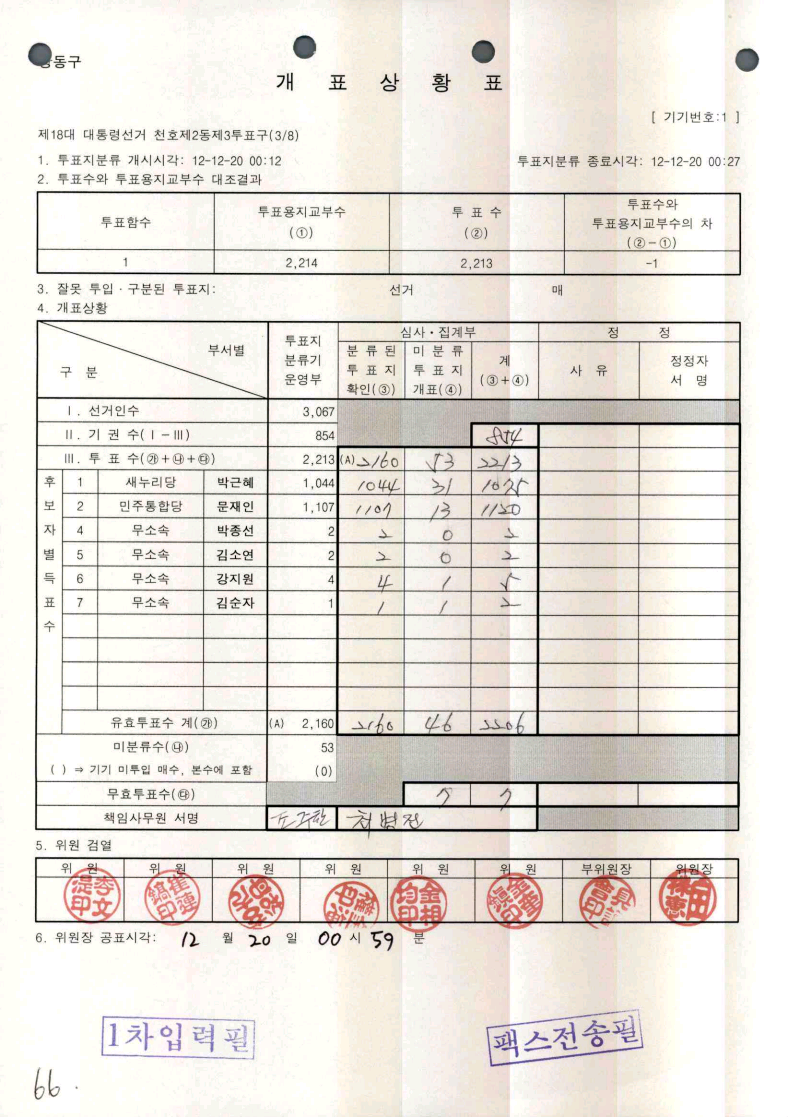 강동구
개 표 상 황 표
[ 기기번호:1 ]
제18대 대통령선거 천호제2동제3투표구(3/8)
1. 투표지분류 개시시각: 12-12-20 00:12 투표지분류 종료시각: 12-12-20 00:27
2. 투표수와 투표용지교부수 대조결과
투표함수 투표용지교부수 (①) 투 표 수 (②) 투표수와 투표용지교부수의 차 (②-①)
1 2,214 2,213 -1
3. 잘못 투입·구분된 투표지: 선거 매
4. 개표상황
부서별 구 분 투표지 분류기 운영부 심사·집계부 정 정
분 류 된 투 표 지 확인(③) 미 분 류 투 표 지 개표(④) 계 (③+④) 사 유 정정자 서 명
Ⅰ. 선거인수 3,067
Ⅱ. 기 권 수(Ⅰ-Ⅲ) 854 854
Ⅲ. 투 표 수(㉮+㉯+㉰) 2,213 (A) 2160 53 2213
후보자별득표수
1 새누리당 박근혜 1,044 1044 31 1075
2 민주통합당 문재인 1,107 1107 13 1120
4 무소속 박종선 2 2 0 2
5 무소속 김소연 2 2 0 2
6 무소속 강지원 4 4 1 5
7 무소속 김순자 1 1 1 2
유효투표수 계(㉮) (A) 2,160 2160 46 2206
미분류수(㉯) 53
( ) ⇒ 기기 미투입 매수, 본수에 포함 (0)
무효투표수(㉰) 7 7
책임사무원 서명
5. 위원 검열
위 원 위 원 위 원 위 원 위 원 위 원 부위원장 위원장
6. 위원장 공표시각: 12 월 20 일 00 시 59 분
1차입력필 팩스전송필
66.